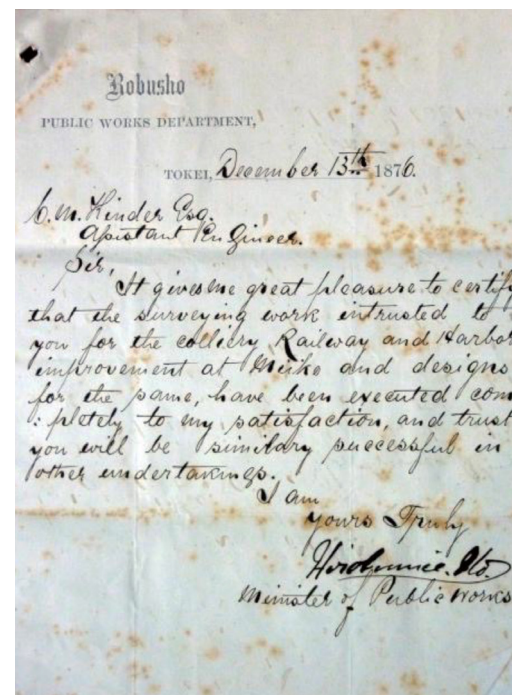 Kobusho
PUBLIC WORKS DEPARTMENT,
TOKEI, December 13th 1876.
C. M. Kinder Esq.
Assistant Engineer.
Sir,
It gives me great pleasure to certify
that the surveying work intrusted to
you for the colliery Railway and Harbor
improvement at Miike and designs
for the same, have been executed com
: pletely to my satisfaction, and trust
you will be similary successful in
other undertakings.
I am
yours Truly
Hirobumie. Ito.
Minister of Public works